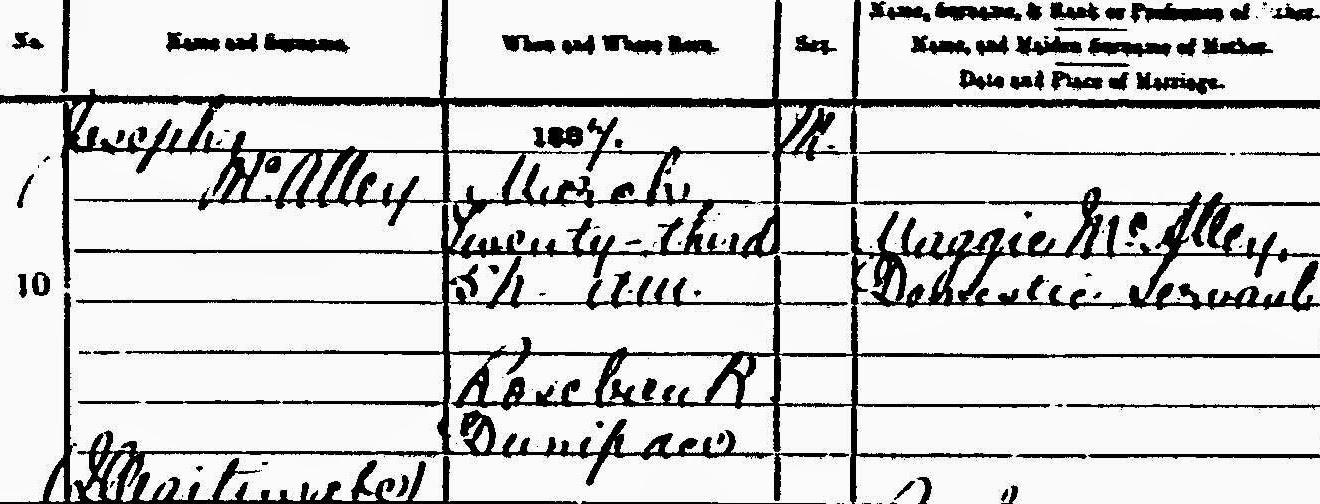 No.
Name and Surname.
When and Where Born.
Sex.
Name, Surname, & Rank or Profession of Father.
Name, and Maiden Surname of Mother.
Date and Place of Marriage.
Joseph
McAlley
(Illegitimate)
10
1887.
March
Twenty-third
5h. A.M.
R
Dunipace
M.
Maggie McAlley,
Domestic Servant